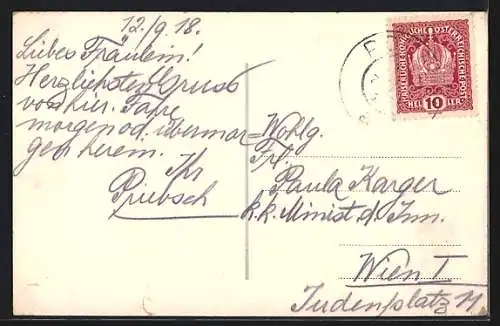 12./9. 18.
Liebes Fräulein!
Herzlichsten Gruss
von hier. Fahre
morgen od. übermor-
gen heim.
Ihr
Priebsch
KAISERLICHE KÖNIGLICHE ÖSTERREICHISCHE POST
HEL 10 LER
Wohlg.
Frl.
Paula Karger
k. k. Minist. d. Inn.
Wien I
Judenplatz 11